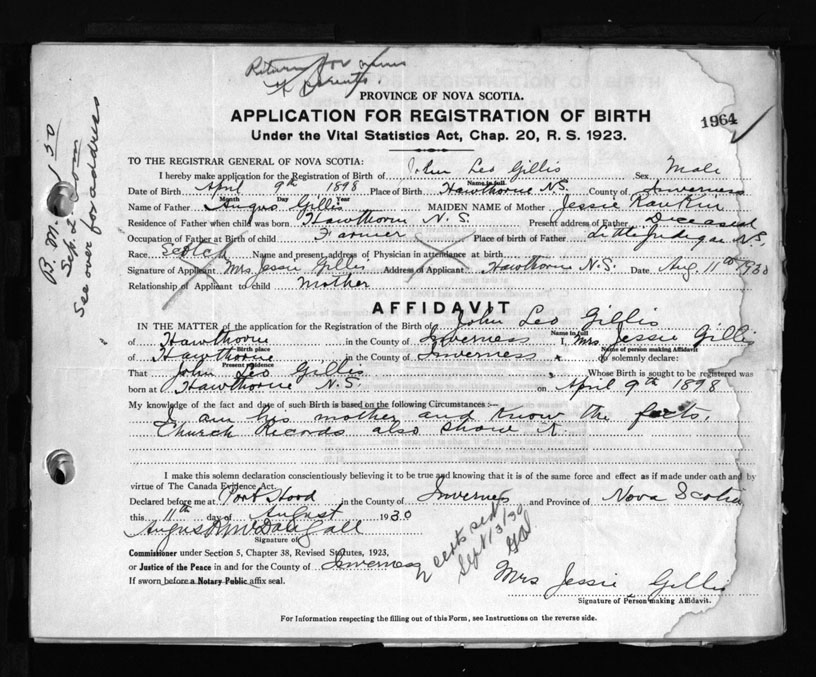 Return for names
of parents.
PROVINCE OF NOVA SCOTIA.
APPLICATION FOR REGISTRATION OF BIRTH
Under the Vital Statistics Act, Chap. 20, R. S. 1923.
1964
B. M. 1 30
Sep. 2
See over for address
TO THE REGISTRAR GENERAL OF NOVA SCOTIA:
I hereby make application for the Registration of Birth of John Leo Gillis Sex Male
Name in full
Date of Birth April 9th 1898 Place of Birth Hawthorne N.S. County of Inverness
Month Day Year
Name of Father Angus Gillis MAIDEN NAME of Mother Jessie Rankin
Residence of Father when child was born Hawthorn N.S. Present address of Father Deceased
Occupation of Father at Birth of child Farmer Place of birth of Father Little Judique N.S.
Race Scotch Name and present address of Physician in attendance at birth
Signature of Applicant Mrs Jessie Gillis Address of Applicant Hawthorne N.S. Date Aug. 11th 1930
Relationship of Applicant to child Mother
AFFIDAVIT
IN THE MATTER of the application for the Registration of the Birth of John Leo Gillis
Name in full
of Hawthorne in the County of Inverness I, Mrs. Jessie Gillis
Birth place Name of person making Affidavit
of Hawthorne in the County of Inverness do solemnly declare:
Present residence
That John Leo Gillis, Whose Birth is sought to be registered was
born at Hawthorne N.S. on April 9th 1898
My knowledge of the fact and date of such Birth is based on the following Circumstances :—
I am his mother and know the facts.
Church Records also show it.
I make this solemn declaration conscientiously believing it to be true and knowing that it is of the same force and effect as if made under oath and by
virtue of The Canada Evidence Act.
Declared before me at Port Hood in the County of Inverness and Province of Nova Scotia
this 11th day of August 1930
Angus R McDougall
Signature of
Commissioner under Section 5, Chapter 38, Revised Statutes, 1923,
or Justice of the Peace in and for the County of Inverness
If sworn before a Notary Public affix seal.
2 certs sent
Sept 13/30
Mrs Jessie Gillis
Signature of Person making Affidavit.
For Information respecting the filling out of this Form, see Instructions on the reverse side.